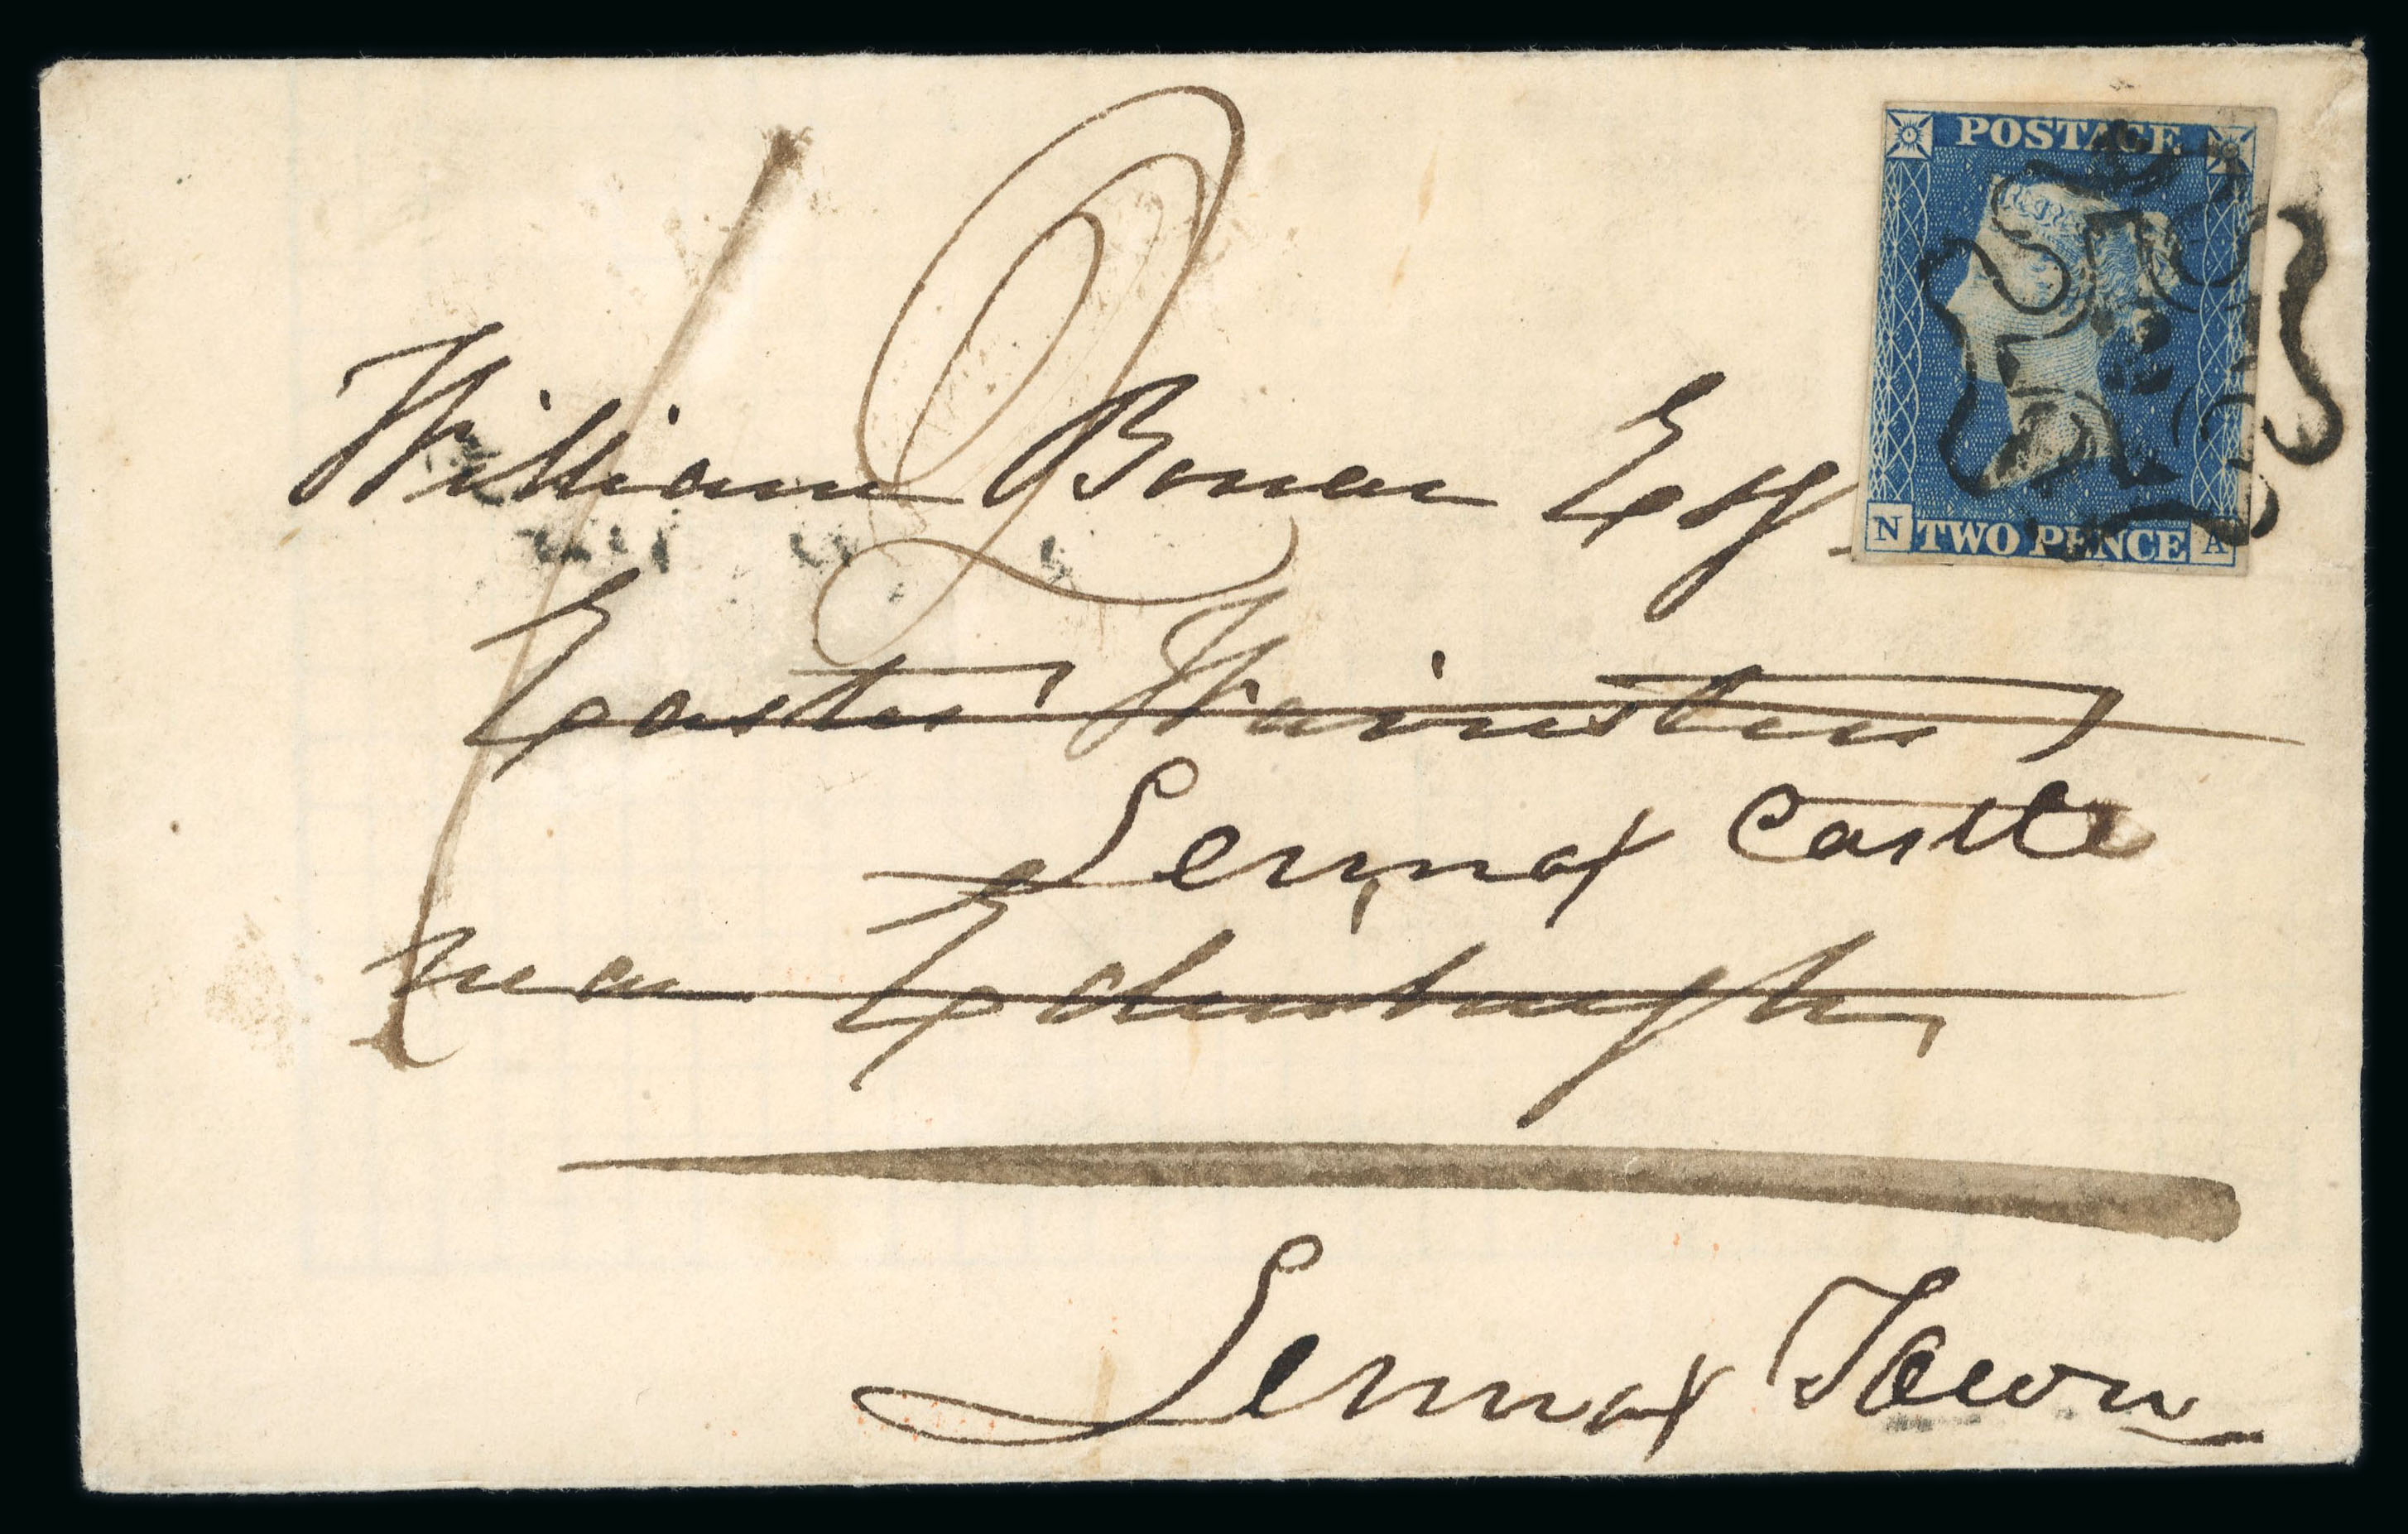 POSTAGE
N TWO PENCE A
2
William Bonar Esq.
Easter Warriston
Lennox Castle
near Edinburgh
Lennox Town